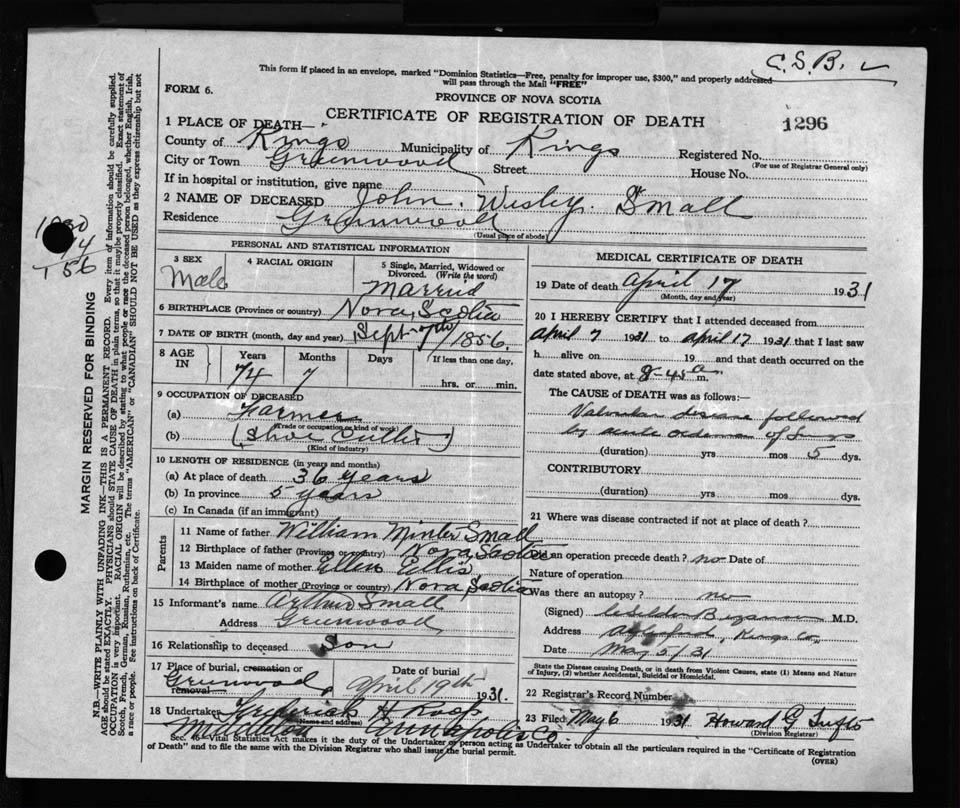 C.S.B.
This form if placed in an envelope, marked "Dominion Statistics—Free, penalty for improper use, $300," and properly addressed
will pass through the Mail "FREE"
FORM 6.
PROVINCE OF NOVA SCOTIA
CERTIFICATE OF REGISTRATION OF DEATH
1296
1 PLACE OF DEATH—
County of Kings Municipality of Kings Registered No.
(For use of Registrar General only)
City or Town Greenwood Street House No.
If in hospital or institution, give name
2 NAME OF DECEASED John Wesley Small
Residence Greenwood
(Usual place of abode)
MARGIN RESERVED FOR BINDING
N.B.—WRITE PLAINLY WITH UNFADING INK—THIS IS A PERMANENT RECORD. Every item of information should be carefully supplied.
AGE should be stated EXACTLY. PHYSICIANS should STATE CAUSE OF DEATH in plain terms, so that it may be properly classified. Exact statement of
OCCUPATION is very important. RACIAL ORIGIN will be described by stating to what people or race the deceased person belonged, whether English, Irish,
Scotch, French, German, Russian, Ruthenian, etc. The terms "AMERICAN" or "CANADIAN" SHOULD NOT BE USED as they express citizenship but not
a race or people. See instructions on back of Certificate.
PERSONAL AND STATISTICAL INFORMATION
3 SEX
Male
4 RACIAL ORIGIN
5 Single, Married, Widowed or
Divorced. (Write the word)
Married
6 BIRTHPLACE (Province or country) Nova Scotia
7 DATE OF BIRTH (month, day and year) Sept 1856
8 AGE IN
Years Months Days If less than one day,
74 7 hrs. or min.
9 OCCUPATION OF DECEASED
(a) Farmer
(Trade or occupation or kind of work)
(b) (Shoe Cutter)
(Kind of industry)
10 LENGTH OF RESIDENCE (in years and months)
(a) At place of death 36 years
(b) In province 5 years
(c) In Canada (if an immigrant)
Parents
11 Name of father William Minter Small
12 Birthplace of father (Province or country) Nova Scotia
13 Maiden name of mother Ellen Ellis
14 Birthplace of mother (Province or country) Nova Scotia
15 Informant's name Arthur Small
Address Greenwood
16 Relationship to deceased Son
17 Place of burial, cremation or removal Date of burial
Greenwood April 19th 1931.
18 Undertaker Frederick H Roop
(Name and address)
Middleton Annapolis Co.
MEDICAL CERTIFICATE OF DEATH
19 Date of death April 17 1931
(Month, day and year)
20 I HEREBY CERTIFY that I attended deceased from
April 7 1931 to April 17 1931 that I last saw
h alive on 19 and that death occurred on the
date stated above, at 8-45 a m.
The CAUSE of DEATH was as follows:
Valvular disease followed
by acute oedema of lungs
(duration) yrs mos 5 dys.
CONTRIBUTORY
(duration) yrs mos dys.
21 Where was disease contracted if not at place of death?
Did an operation precede death? no Date of
Nature of operation
Was there an autopsy? no
(Signed) M.D.
Address Aylesford, Kings Co,
Date May 5/31
State the Disease causing Death, or in death from Violent Causes, state (1) Means and Nature
of Injury, (2) whether Accidental, Suicidal or Homicidal.
22 Registrar's Record Number
23 Filed May 6 1931 Howard G
(Division Registrar)
Sec. 46—Vital Statistics Act makes it the duty of the Undertaker or person acting as Undertaker to obtain all the particulars required in the "Certificate of Registration
of Death" and to file the same with the Division Registrar who shall issue the burial permit.
(OVER)